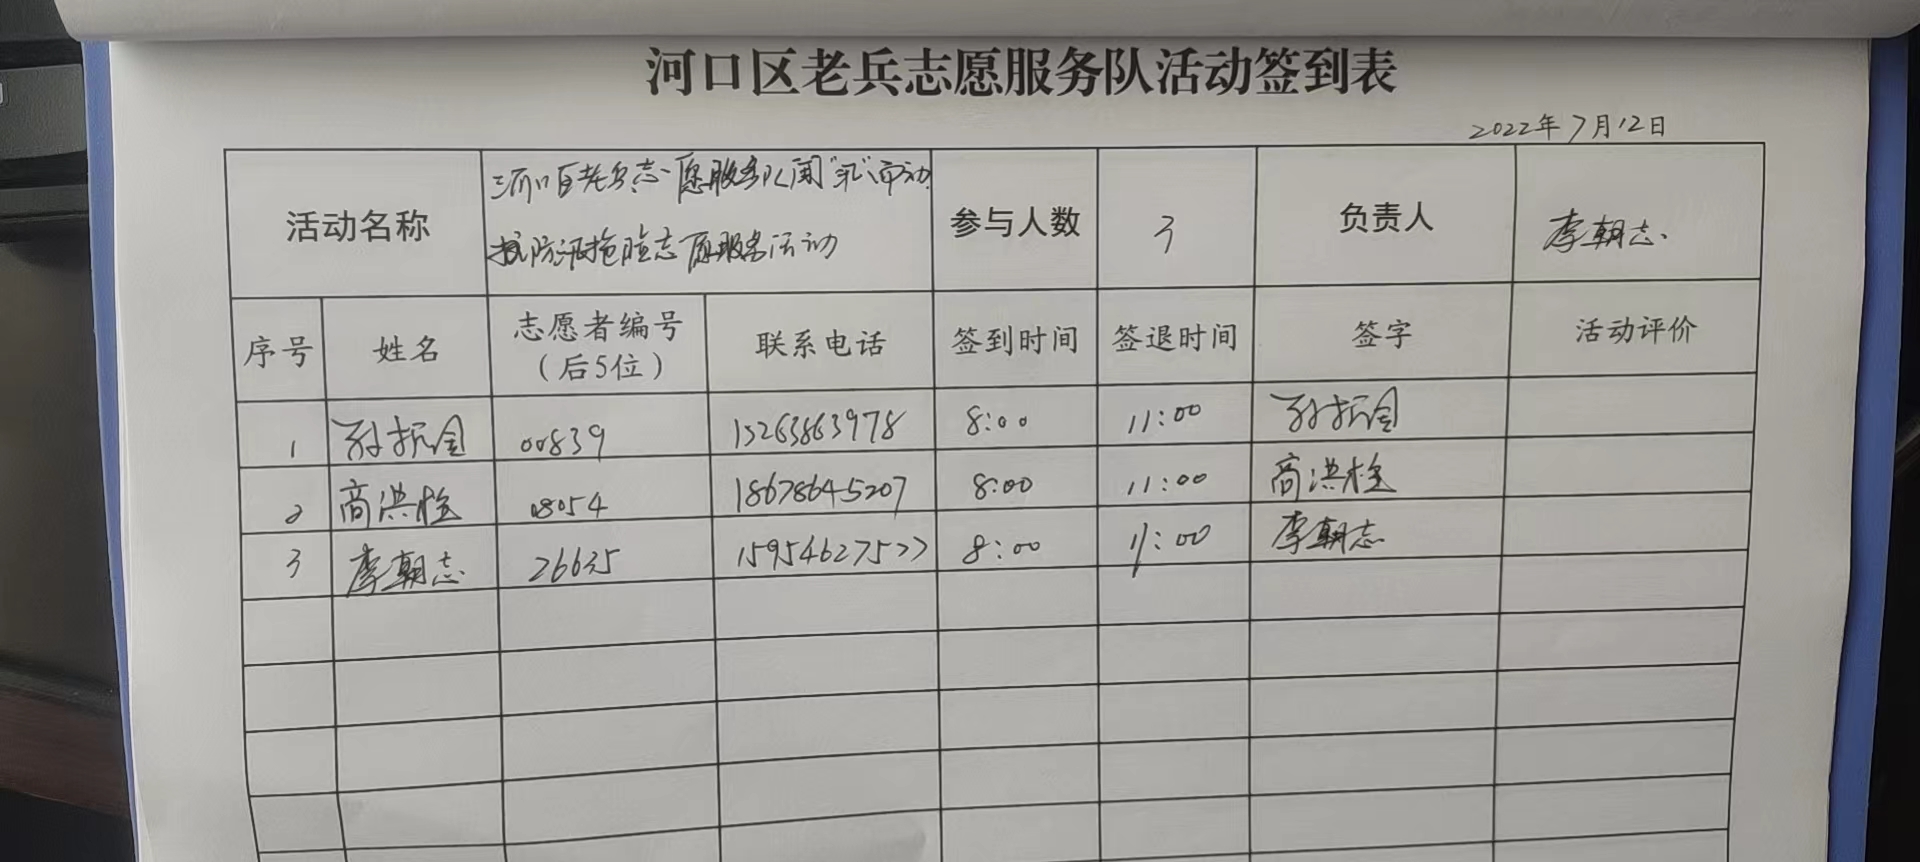 河口区老兵志愿服务队活动签到表
2022年7月12日
活动名称 河口区老兵志愿服务队闻“汛”而动 参与人数 3 负责人 李朝志
防汛抢险志愿服务活动
序号 姓名 志愿者编号（后5位） 联系电话 签到时间 签退时间 签字 活动评价
1 孙振金 00839 15263863978 8:00 11:00 孙振金
2 高洪栓 08054 18678645207 8:00 11:00 高洪栓
3 李朝志 26635 15954627577 8:00 11:00 李朝志